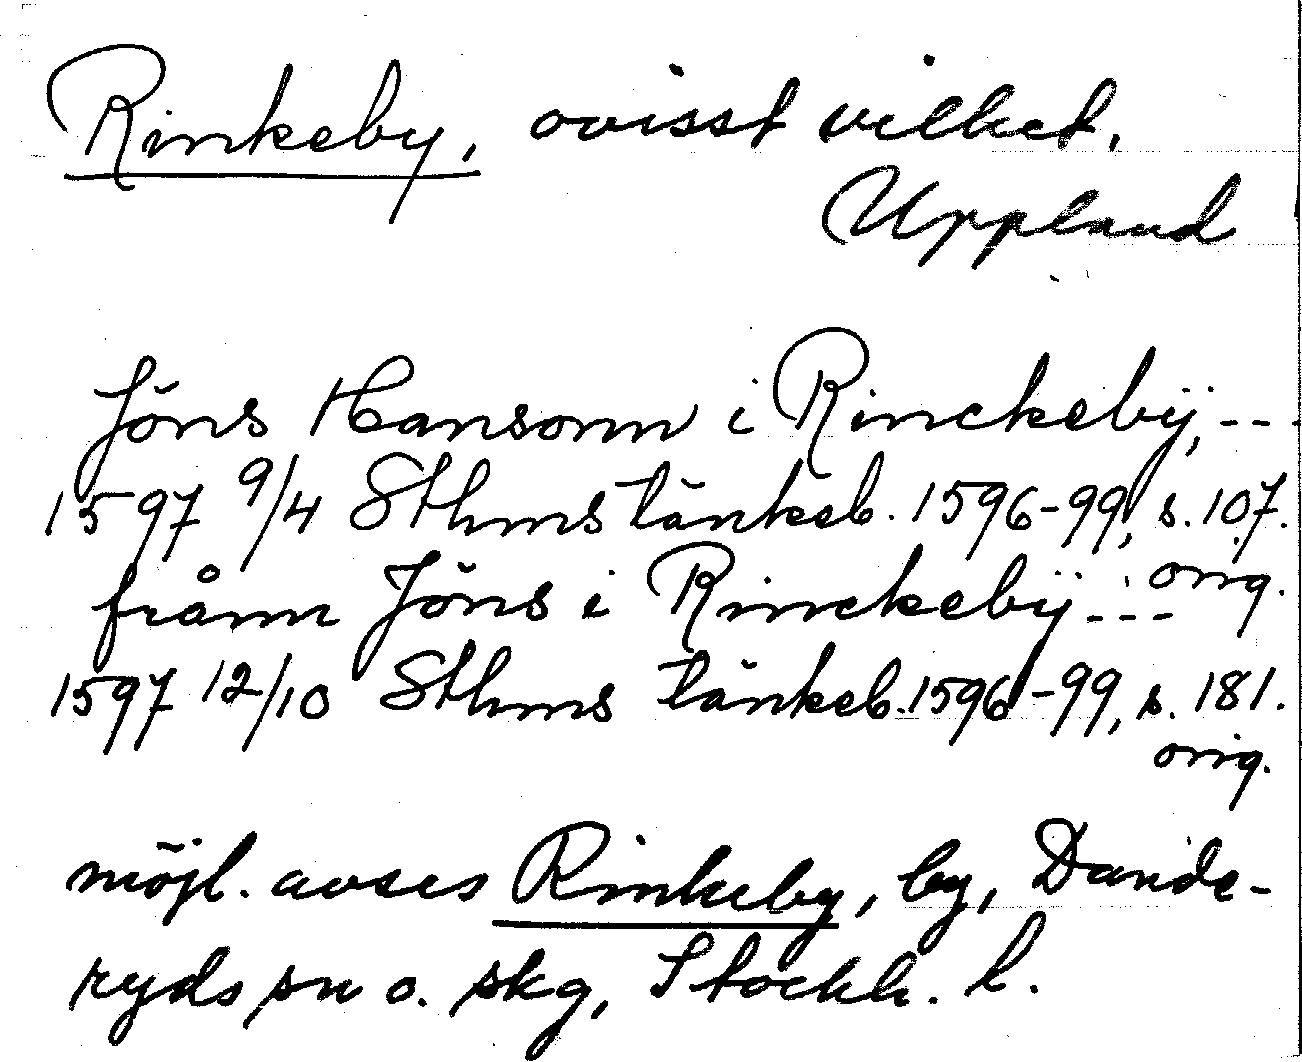 Rinkeby, ovisst vilket.
Uppland
Jöns Hansonn i Rinckebÿ, ---
1597 9/4 Sthms tänkeb. 1596-99, s. 107.
orig.
frånn Jöns i Rinckebÿ ---
1597 12/10 Sthms tänkeb. 1596-99, s. 181.
orig.
möjl. avses Rinkeby, by, Dande-
ryds sn o. skg, Stockh. l.